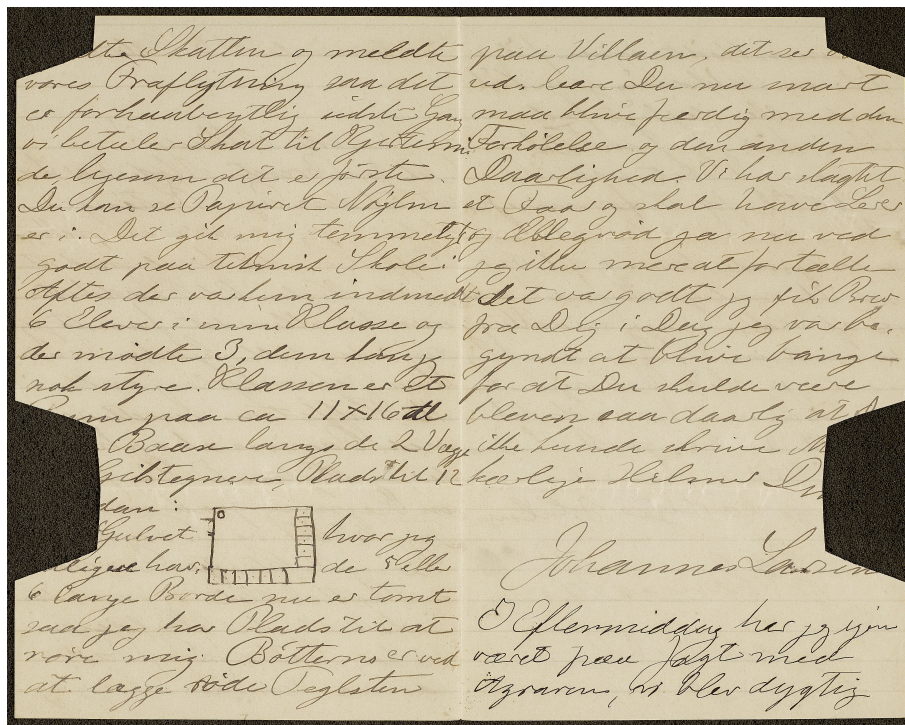 Skatten og meldte
vores Fraflytning saa det
er forhaabentlig sidste Gang
vi betaler Skat til Kjertemin
de, ligesom det er første.
Du kan se Papiret Nøglen
er i. Det gik mig temmelig
godt paa teknisk Skole i
Aftes der var kun indmeldt
6 Elever i min Klasse og
der mødte 3, dem kan jeg
nok styre. Klassen er et
Rum paa ca 11 x 16 al
Baase langs de 2 Vægge
Gibstegnere, Plads til 12
dan:
Gulvet hvor jeg
have de 5 eller
6 lange Borde nu er tomt
saa jeg har Plads til at
røre mig. Bötterns er ved
at lægge røde Teglsten
paa Villaen, det ser
ud. bare Du nu snart
maa blive færdig med den
Forkølelse og den anden
Daarlighed. Vi har slagtet
et Faar og skal have Lever
og Øllegrød ja nu ved
jeg ikke mere at fortælle
Det var godt jeg fik Brev
fra Dig i Dag jeg var be-
gyndt at blive bange
for at Du skulde være
bleven saa daarlig at
ikke kunde skrive
kærlige Hilsner Din
Johannes Larsen
I Eftermiddag har jeg igen
været paa Jagt med
Agraren, vi blev dygtig